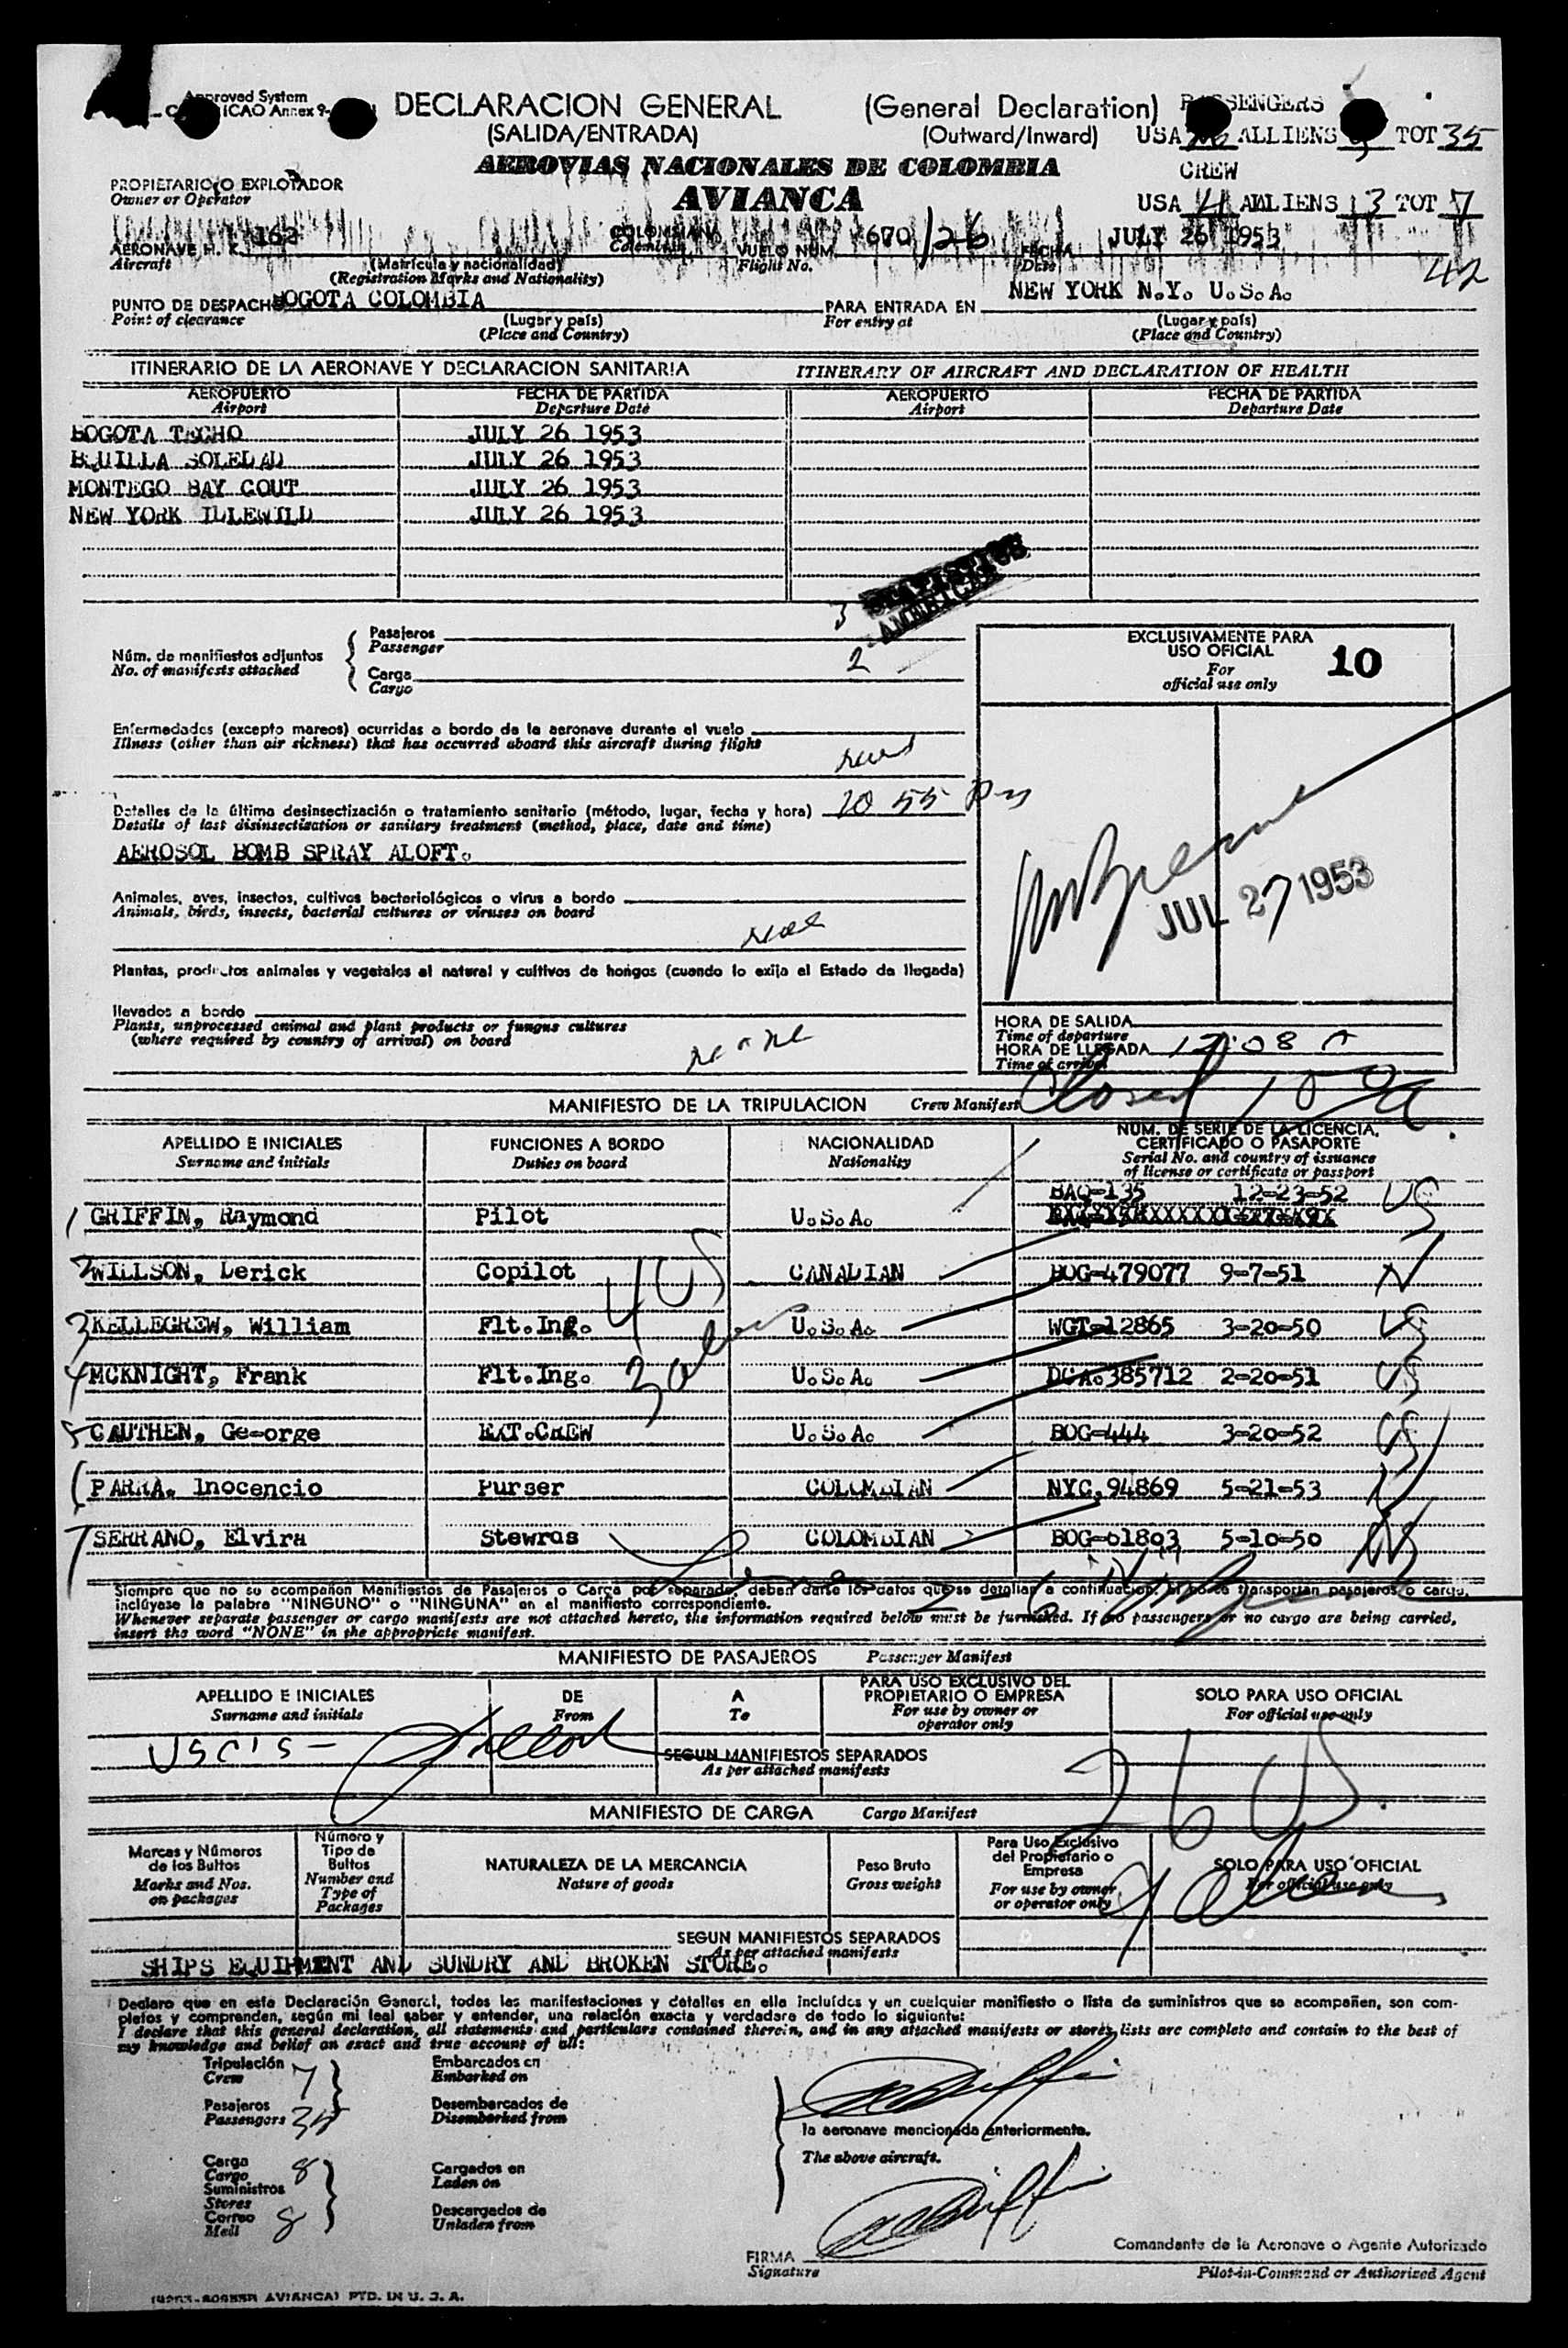 Approved System
ICAO Annex 9-
DECLARACION GENERAL (General Declaration)
(SALIDA/ENTRADA) (Outward/Inward)
PASSENGERS
USA 26 ALLIENS 9 TOT 35
AEROVIAS NACIONALES DE COLOMBIA
AVIANCA
CREW
USA 4 ALLIENS 3 TOT 7
42
PROPIETARIO O EXPLOTADOR
Owner or Operator
AERONAVE H. K. 162 COLOMBIANA VUELO NUM. 670/26 FECHA JULY 26 1953
Aircraft Colombian Flight No. Date
(Matrícula y nacionalidad)
(Registration Marks and Nationality)
PUNTO DE DESPACHO BOGOTA COLOMBIA PARA ENTRADA EN NEW YORK N.Y. U.S.A.
Point of clearance For entry at
(Lugar y país) (Lugar y país)
(Place and Country) (Place and Country)
ITINERARIO DE LA AERONAVE Y DECLARACION SANITARIA ITINERARY OF AIRCRAFT AND DECLARATION OF HEALTH
AEROPUERTO FECHA DE PARTIDA AEROPUERTO FECHA DE PARTIDA
Airport Departure Date Airport Departure Date
BOGOTA TECHO JULY 26 1953
BQUILLA SOLEDAD JULY 26 1953
MONTEGO BAY COUT JULY 26 1953
NEW YORK IDLEWILD JULY 26 1953
Núm. de manifiestos adjuntos
No. of manifests attached
Pasajeros
Passenger 3
Carga
Cargo 2
EXCLUSIVAMENTE PARA
USO OFICIAL
For
official use only
10
Enfermedades (excepto mareos) ocurridas a bordo de la aeronave durante el vuelo
Illness (other than air sickness) that has occurred aboard this aircraft during flight
Detalles de la última desinsectización o tratamiento sanitario (método, lugar, fecha y hora) 10 55 pm
Details of last disinsectization or sanitary treatment (method, place, date and time)
AEROSOL BOMB SPRAY ALOFT.
JUL 27 1953
Animales, aves, insectos, cultivos bacteriológicos o virus a bordo
Animals, birds, insects, bacterial cultures or viruses on board
Plantas, productos animales y vegetales al natural y cultivos de hongos (cuando lo exija el Estado de llegada)
llevados a bordo
Plants, unprocessed animal and plant products or fungus cultures
(where required by country of arrival) on board
none
HORA DE SALIDA
Time of departure
HORA DE LLEGADA 12:08 A
Time of arrival
Closed
MANIFIESTO DE LA TRIPULACION Crew Manifest
APELLIDO E INICIALES FUNCIONES A BORDO NACIONALIDAD NUM. DE SERIE DE LA LICENCIA, CERTIFICADO O PASAPORTE
Surname and initials Duties on board Nationality Serial No. and country of issuance of license or certificate or passport
BAQ-135 12-23-52 US
1 GRIFFIN, Raymond Pilot U.S.A.
2 WILLSON, Derick Copilot CANADIAN BOG-479077 9-7-51
3 KELLEGREW, William Flt.Ing. U.S.A. WGT-12865 3-20-50 US
4 MCKNIGHT, Frank Flt.Ing. U.S.A. DCA.385712 2-20-51 US
5 CAUTHEN, Ge-orge EXT.CREW U.S.A. BOG-444 3-20-52 US
PARRA, Inocencio Purser COLOMBIAN NYC.94869 5-21-53
7 SERRANO, Elvira Stewras COLOMBIAN BOG-61803 5-10-50
4 US
3 alien
Siempre que no se acompañen Manifiestos de Pasajeros o Carga por separado, deben darse los datos que se detallan a continuación. Si no se transportan pasajeros o carga,
inclúyase la palabra "NINGUNO" o "NINGUNA" en el manifiesto correspondiente.
Whenever separate passenger or cargo manifests are not attached hereto, the information required below must be furnished. If no passengers or no cargo are being carried,
insert the word "NONE" in the appropriate manifest.
MANIFIESTO DE PASAJEROS Passenger Manifest
APELLIDO E INICIALES DE A PARA USO EXCLUSIVO DEL PROPIETARIO O EMPRESA SOLO PARA USO OFICIAL
Surname and initials From To For use by owner or operator only For official use only
SEGUN MANIFIESTOS SEPARADOS
As per attached manifests
26 US
9 alien
MANIFIESTO DE CARGA Cargo Manifest
Marcas y Números de los Bultos Número y Tipo de Bultos NATURALEZA DE LA MERCANCIA Peso Bruto Para Uso Exclusivo del Propietario o Empresa SOLO PARA USO OFICIAL
Marks and Nos. on packages Number and Type of Packages Nature of goods Gross weight For use by owner or operator only For official use only
SEGUN MANIFIESTOS SEPARADOS
As per attached manifests
SHIPS EQUIPMENT AND SUNDRY AND BROKEN STORE.
Declaro que en esta Declaración General, todas las manifestaciones y detalles en ella incluídos y un cualquier manifiesto o lista de suministros que se acompañen, son com-
pletos y comprenden, según mi leal saber y entender, una relación exacta y verdadera de todo lo siguiente:
I declare that this general declaration, all statements and particulars contained therein, and in any attached manifests or stores lists are complete and contain to the best of
my knowledge and belief an exact and true account of all:
Tripulación Embarcados en
Crew 7 Embarked on
Pasajeros Desembarcados de
Passengers 35 Disembarked from
la aeronave mencionada anteriormente.
The above aircraft.
Carga Cargados en
Cargo 8 Laden on
Suministros
Stores Descargados de
Correo Unladen from
Mail 8
FIRMA
Signature
Comandante de la Aeronave o Agente Autorizado
Pilot-in-Command or Authorized Agent
AVIANCA) PTD. IN U. S. A.